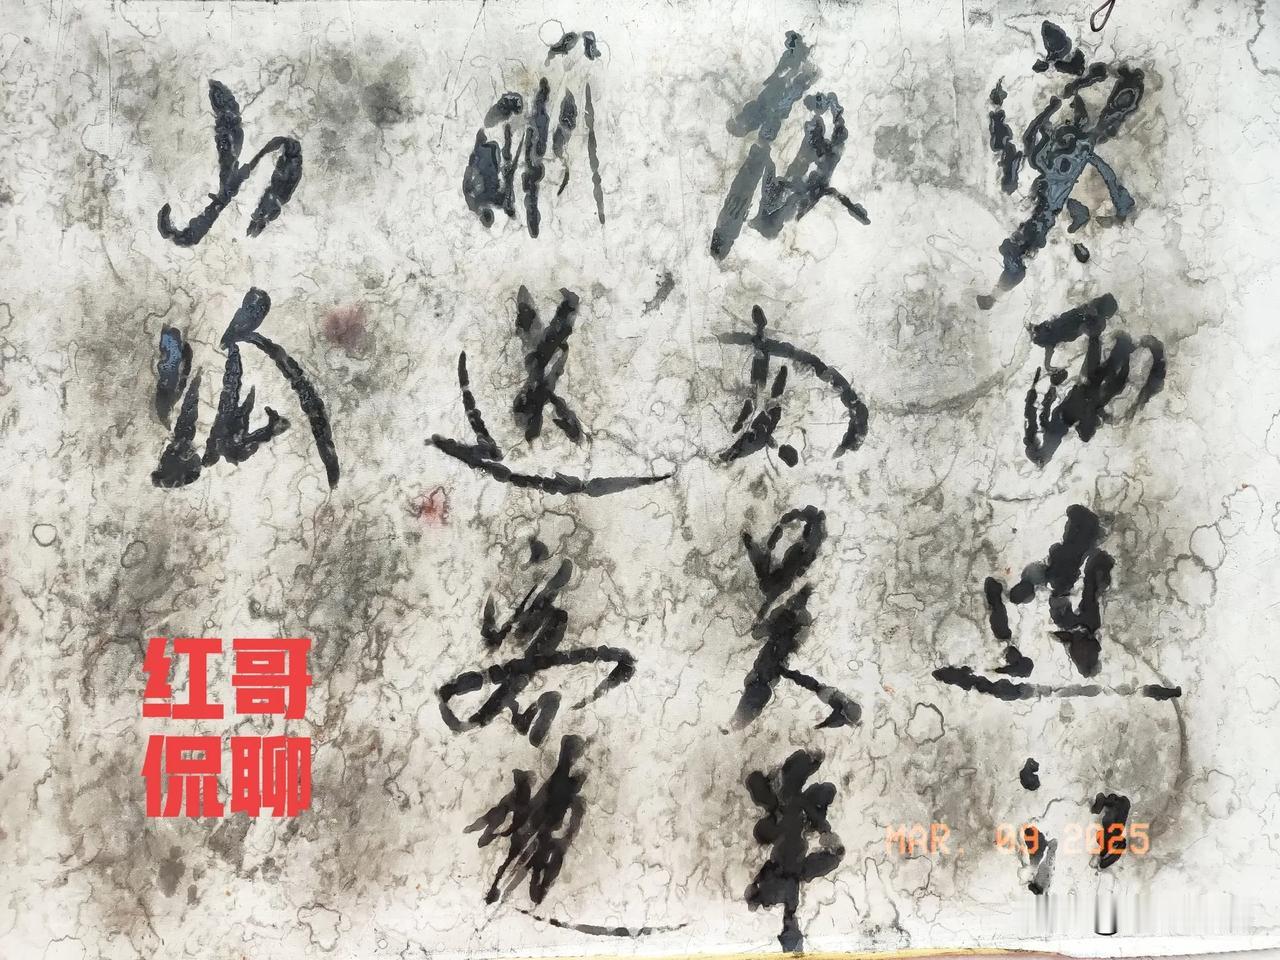 寒雨連江
夜入吴平
明送客楚
山孤
红哥
侃聊
MAR. 09 2025